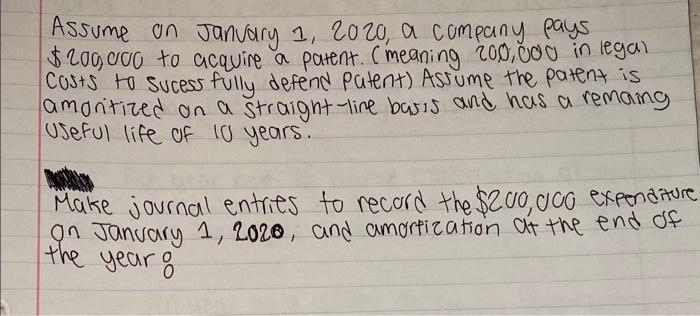 Assume on January 1, 2020, a company pays
$200,000 to acquire a patent. (meaning 200,000 in legal
costs to sucess fully defend patent) Assume the patent is
amoritized on a straight-line basis and has a remaing
useful life of 10 years.
Make journal entries to record the $200,000 expenditure
on January 1, 2020, and amortization at the end of
the year: